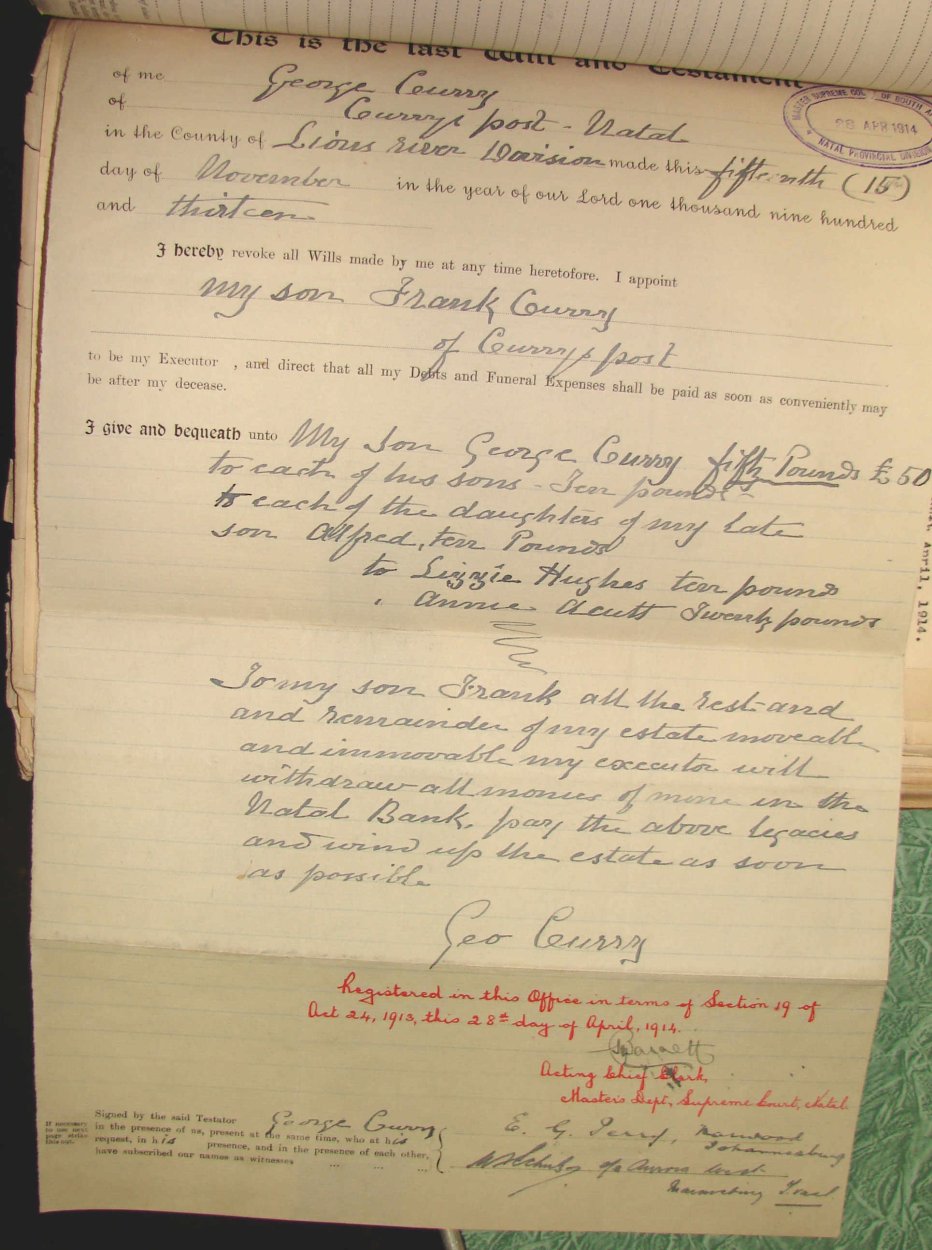 This is the last Will and Testament
of me George Curry
of Currys post - Natal
in the County of Lions river Division made this fifteenth (15th)
day of November in the year of our Lord one thousand nine hundred
and thirteen
MASTER SUPREME OF SOUTH
28 APR 1914
NATAL PROVINCIAL DIVISION
I hereby revoke all Wills made by me at any time heretofore. I appoint
My son Frank Curry
of Currys post
to be my Executor , and direct that all my Debts and Funeral Expenses shall be paid as soon as conveniently may
be after my decease.
I give and bequeath unto My Son George Curry fifty Pounds £50
to each of his sons - Ten pounds -
to each of the daughters of my late
son Alfred, ten Pounds
to Lizzie Hughes ten pounds
" Annie Acutt Twenty pounds
To my son Frank all the rest and
and remainder of my estate moveable
and immovable my executor will
withdraw all monies of mine in the
Natal Bank, pay the above legacies
and wind up the estate as soon
as possible
Geo Curry
Registered in this Office in terms of Section 19 of
Act 24, 1913, this 28th day of April, 1914.
Acting Chief Clerk,
Master's Dept, Supreme Court, Natal
April, 1914.
If necessary
to use next
page strike
this out.
Signed by the said Testator George Curry
in the presence of us, present at the same time, who at his
request, in his presence, and in the presence of each other,
have subscribed our names as witnesses ... ... ...
E. G.
Johannesburg